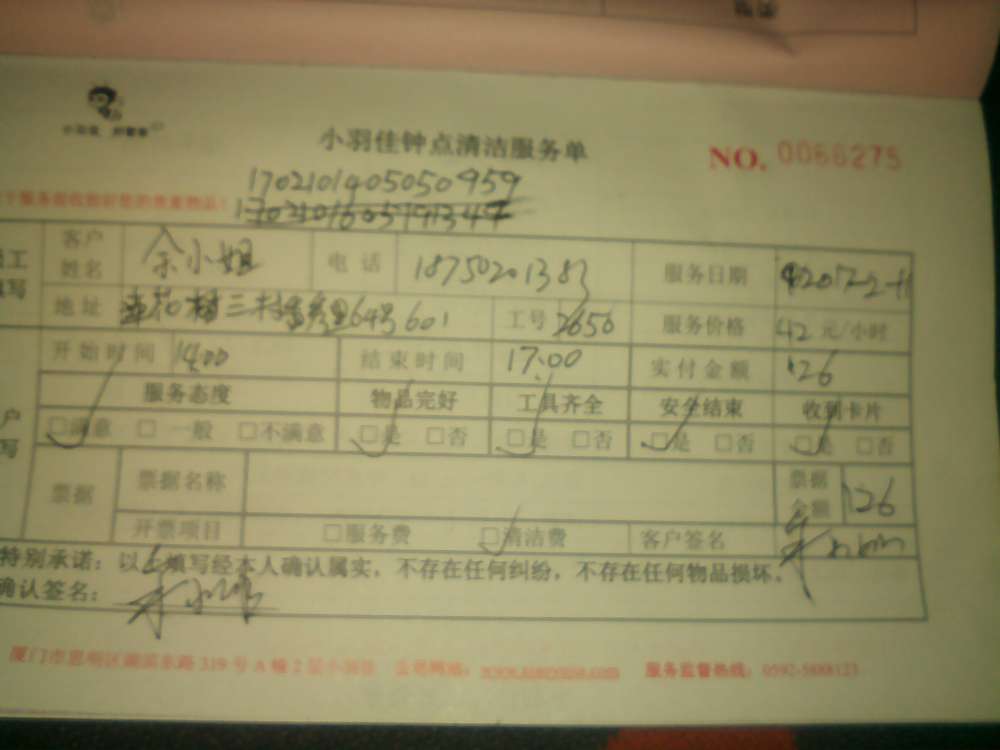 小羽佳钟点清洁服务单
NO. 0066275
1702101405050959
客户姓名 余小姐 电话 18750201383 服务日期 2017-2-11
地址 莲花 三村 64号601 工号 2656 服务价格 42 元/小时
开始时间 14:00 结束时间 17:00 实付金额 126
服务态度 物品完好 工具齐全 安全结束 收到卡片
□满意 □一般 □不满意 □是 □否 □是 □否 □是 □否 □是 □否
票据 票据名称 票据金额 126
开票项目 □服务费 □清洁费 客户签名
特别承诺：以上填写经本人确认属实，不存在任何纠纷，不存在任何物品损坏。
确认签名：
厦门市思明区湖滨东路 319 号 A 幢 2 层小羽佳 公司网站： 服务监督热线：0592-5888123